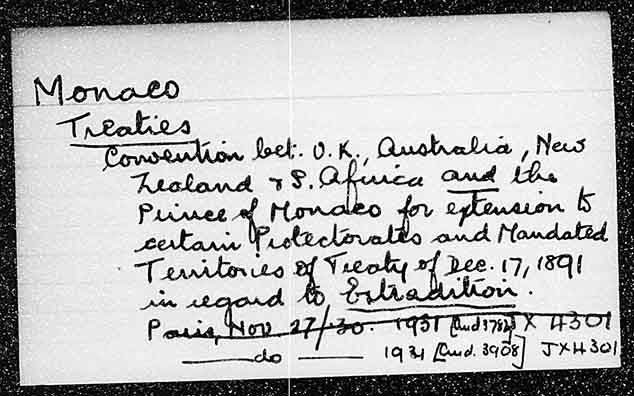 Monaco
Treaties
Convention bet. U.K., Australia, New
Zealand & S. Africa and the
Prince of Monaco for extension to
certain Protectorates and Mandated
Territories of Treaty of Dec. 17, 1891
in regard to Extradition.
Paris, Nov 27/30. 1931 [Cmd 3782] JX 4301
do 1931 [Cmd. 3908] JX4301